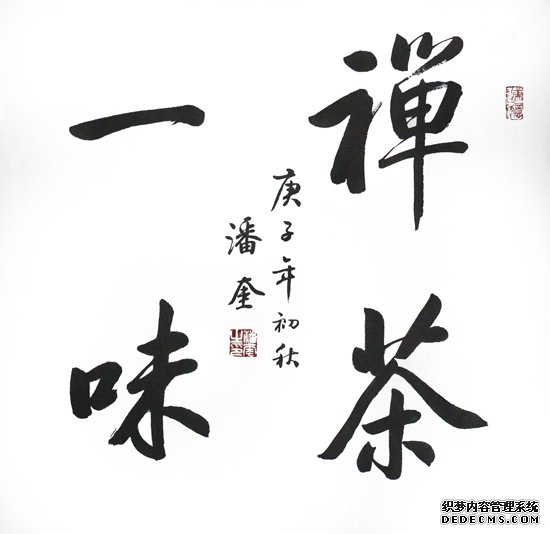 禪茶
一味
庚子年初秋
潘奎
织梦内容管理系统
DEDECMS.COM